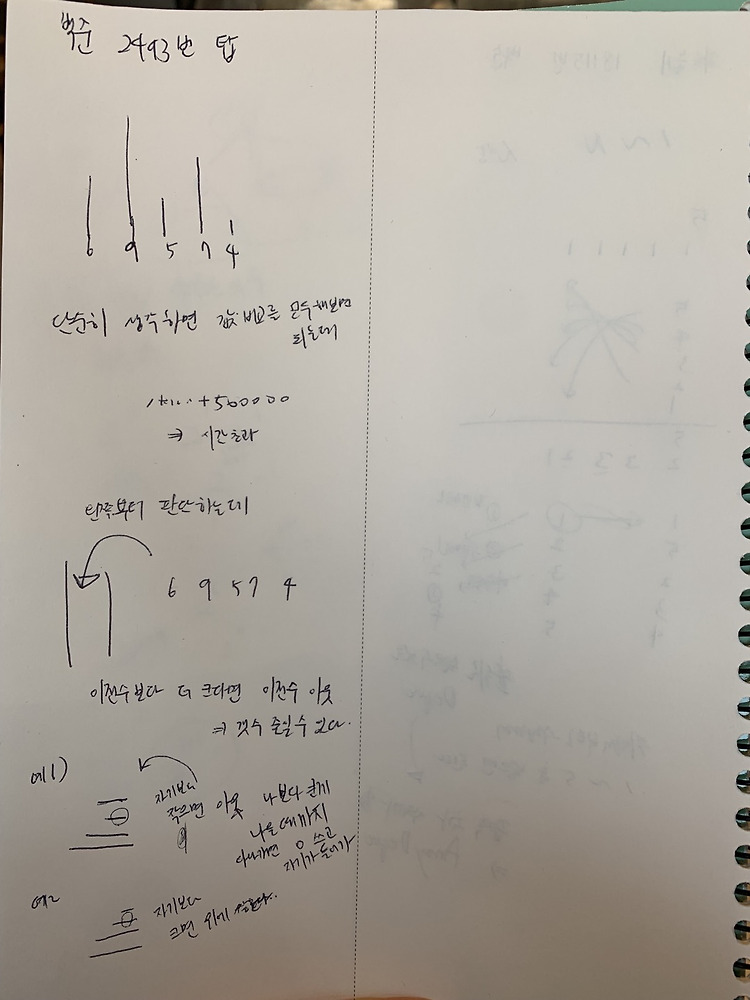 백준 2493번 탑
6 9 5 7 4
단순히 생각하면 값 비교를 모두해보면
되는데
1+1...+500000
⇒ 시간초과
왼쪽부터 판단하는데
6 9 5 7 4
이전수보다 더 크다면 이전수 아웃
⇒ 갯수 줄일수 있다.
예1)
자기보다
작으면 아웃
나보다 큰게
나올때까지
다나가면 0 쓰고
자기가 들어가
예2
자기보다
크면 위에